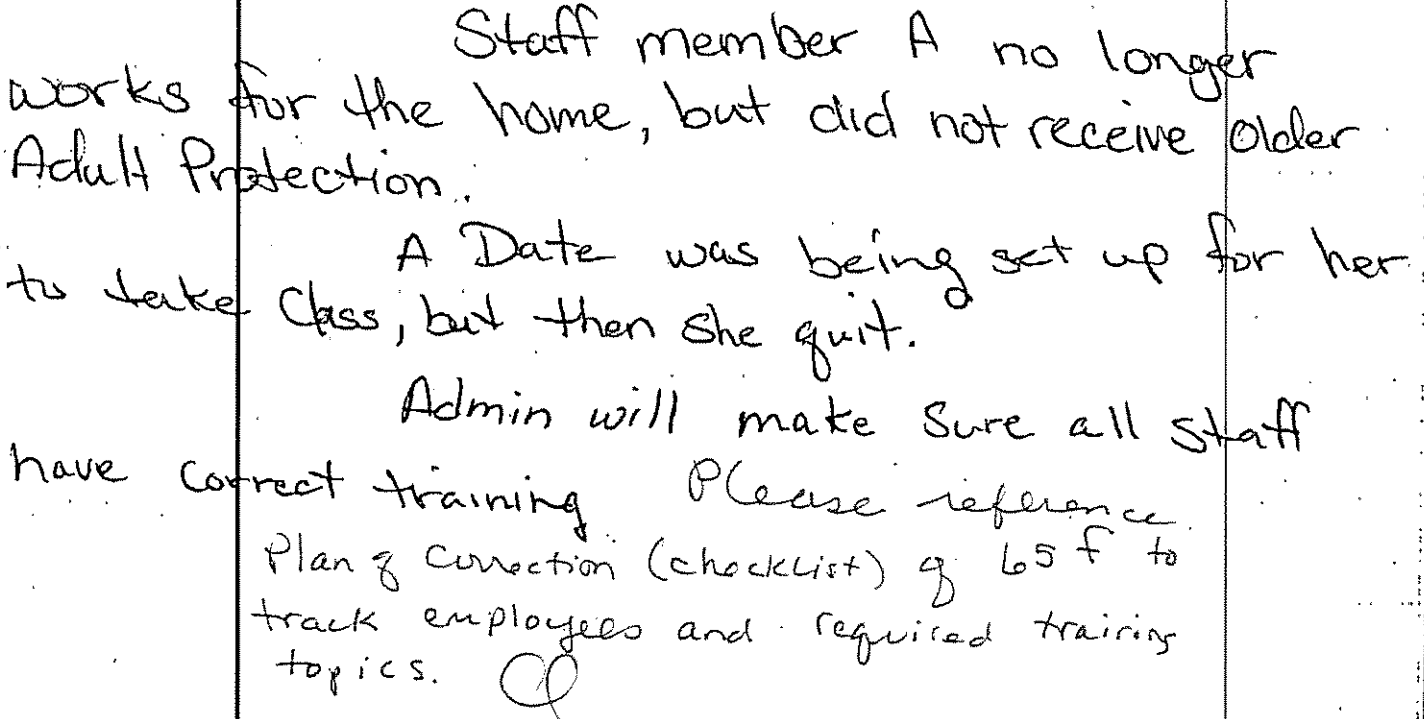 Staff member A no longer
works for the home, but did not receive Older
Adult Protection.
A Date was being set up for her
to take Class, but then she quit.
Admin will make sure all staff
have correct training Please reference
Plan of Correction (checklist) of 65f to
track employees and required training
topics.